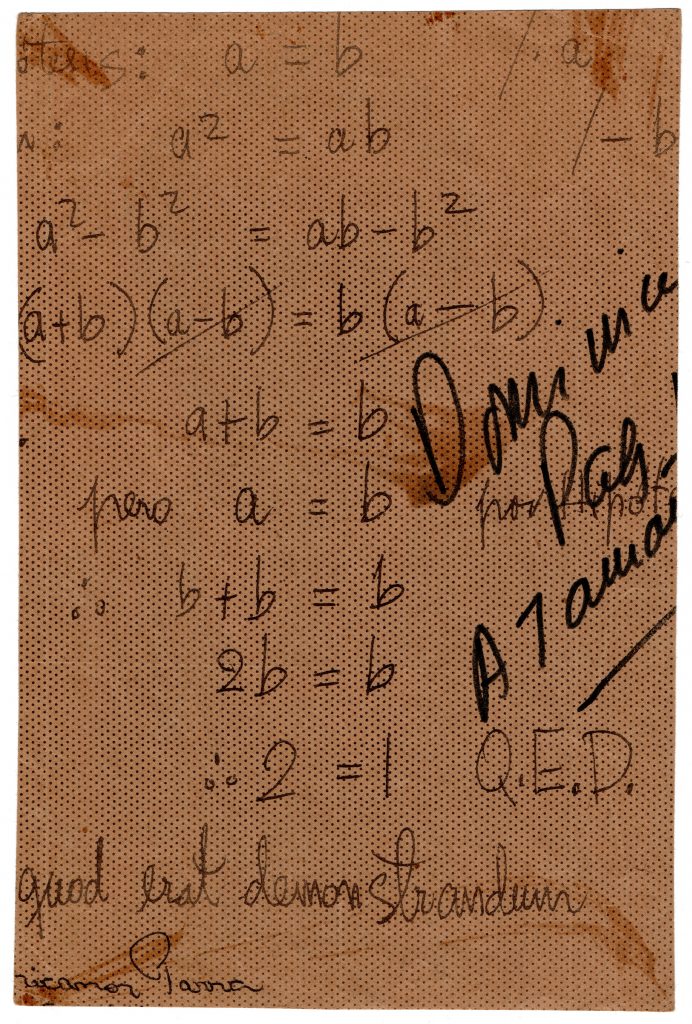 ótesis: a = b /· a
n: a² = ab /- b
a² - b² = ab - b²
(a+b)(a-b) = b(a-b)
a+b = b
pero a = b por Hipót
∴ b+b = b
2b = b
∴ 2 = 1 Q.E.D.
quod erat demonstrandum
nicanor Parra